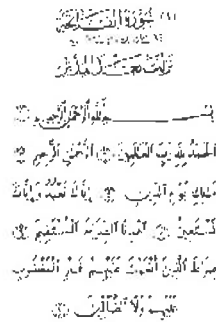 (١) سُورَةُ الفَاتِحَةِ
نزلت بعد المدثر
بِسْمِ اللَّهِ الرَّحْمَٰنِ الرَّحِيمِ
الْحَمْدُ لِلَّهِ رَبِّ الْعَالَمِينَ الرَّحْمَٰنِ الرَّحِيمِ
مَٰلِكِ يَوْمِ الدِّينِ إِيَّاكَ نَعْبُدُ وَإِيَّاكَ
نَسْتَعِينُ اهْدِنَا الصِّرَاطَ الْمُسْتَقِيمَ
صِرَاطَ الَّذِينَ أَنْعَمْتَ عَلَيْهِمْ غَيْرِ الْمَغْضُوبِ
عَلَيْهِمْ وَلَا الضَّالِّينَ